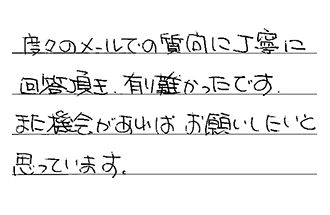 度々のメールでの質問に丁寧に
回答頂き、有り難かったです.
また機会があればお願いしたいと
思っています。